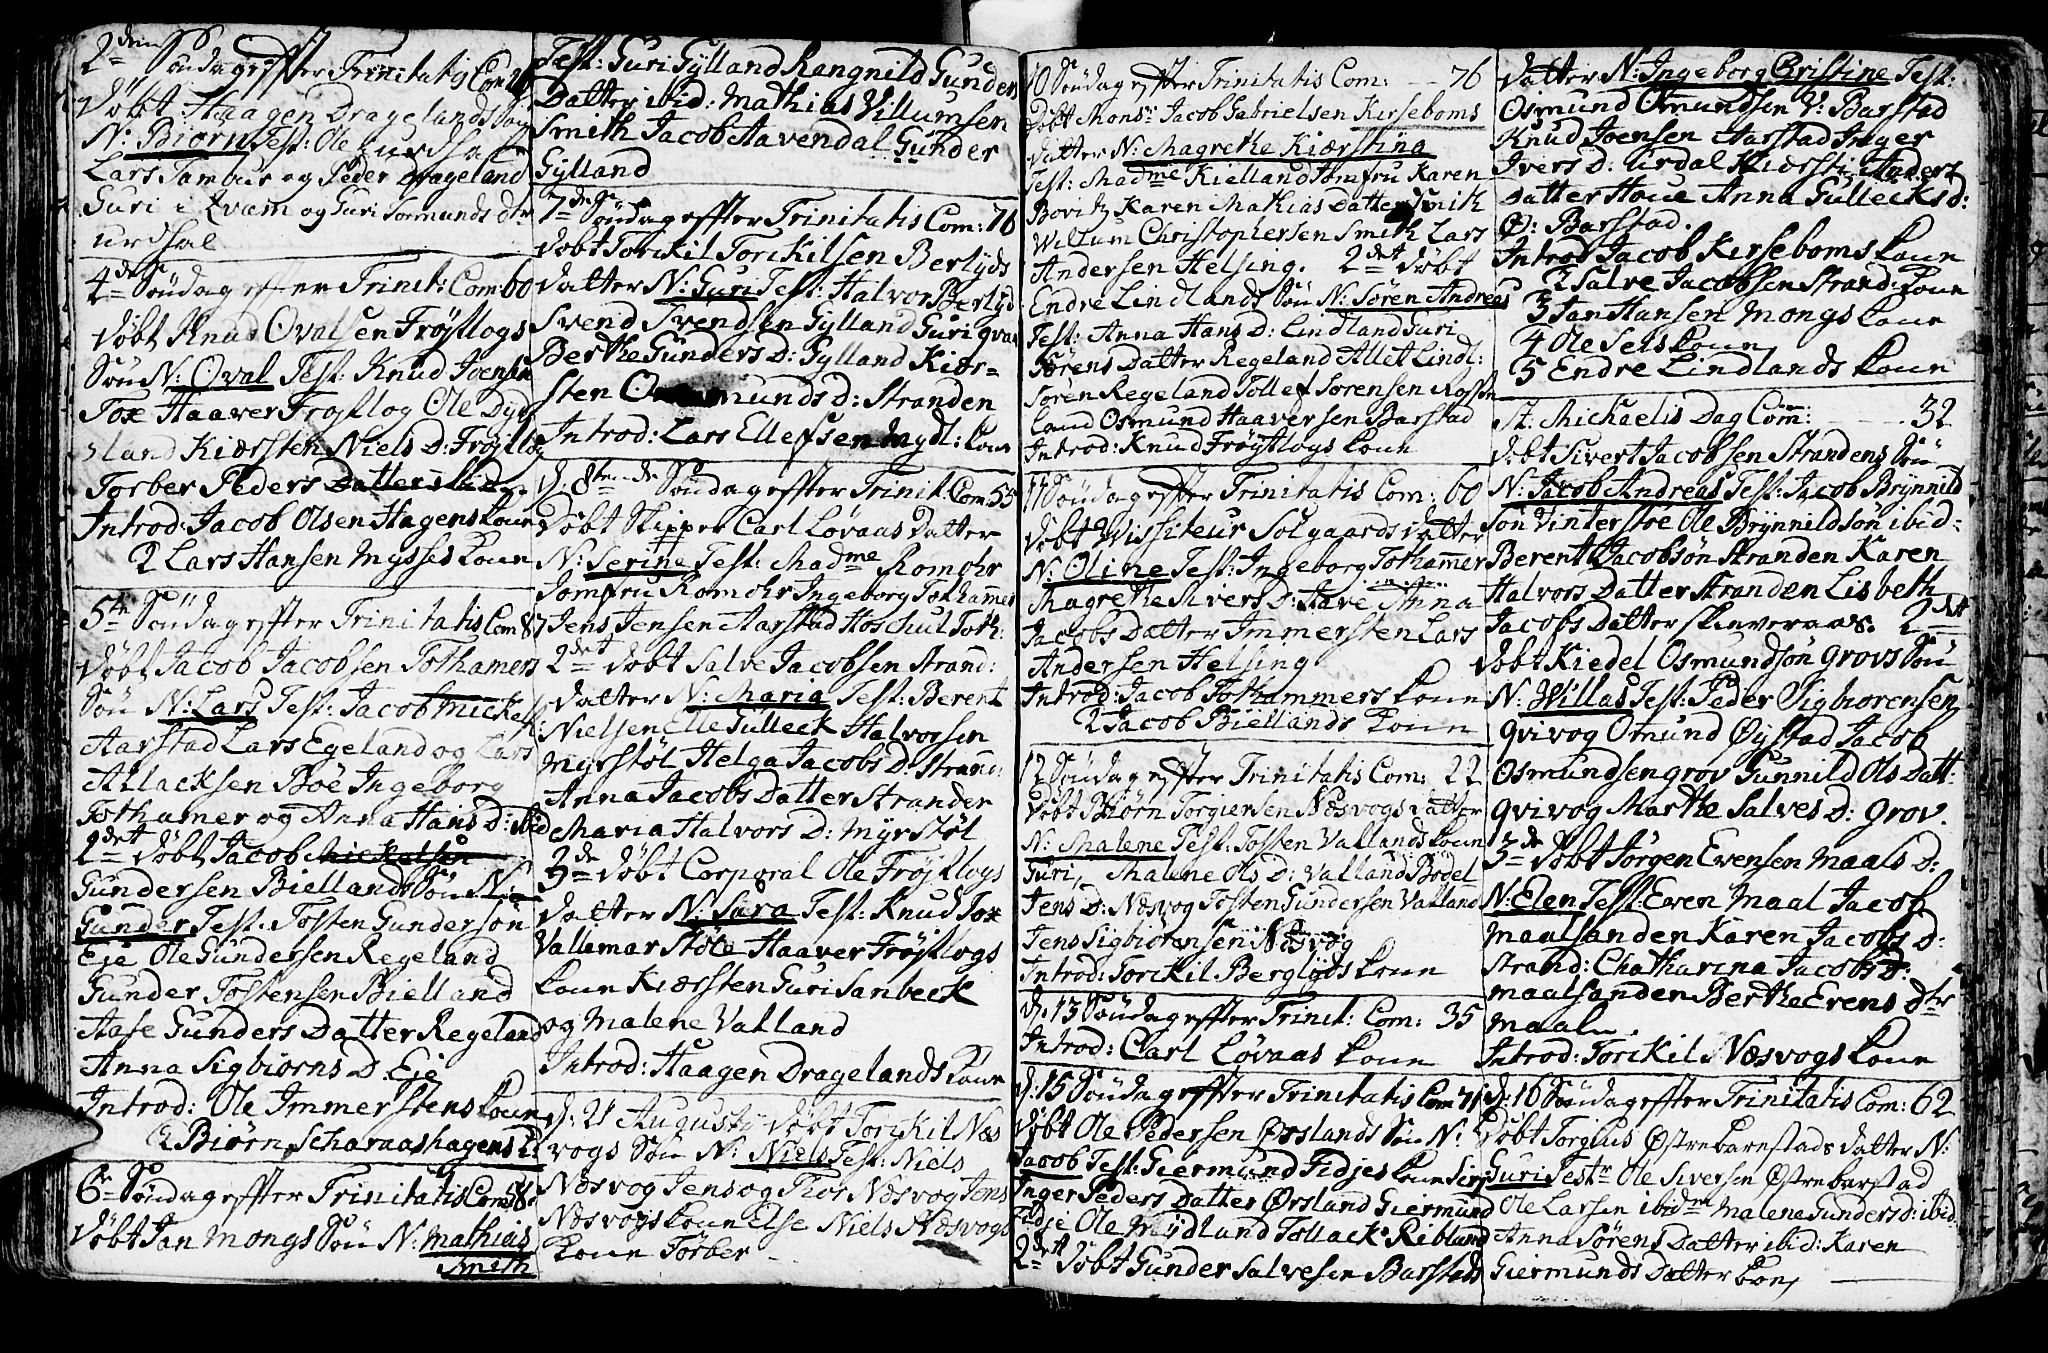 2den Söndag effter Trinitatis Com 26
döbt Haagen Dragelands Sön
N: Biørn Test: Ole urdsal
Lars Tambur og Peder Drageland
Guri i Qvam og Guri Tormunds dtr
urdsal
4de Söndag effter Trinit: Com: 60
döbt Knud Ovalsen Fröjtlogs
Sön N: Oval Test: Knud Joensen
Toxe Haaver Fröjtlog Ole Dyds
land Kiersten Niels D: Fröjtlog
Torber Peders Datter ibid
Introd: Jacob Olsen Hagens kone
2 Lars Hansen Mysses kone
5te Söndag effter Trinitatis Com 87
döbt Jacob Jacobsen Tothamers
Sön N: Lars Test: Jacob Mickels
Aarstad Lars Egeland og Lars
Atlacksen Böe Ingeborg
Tothamer og Anna Hans D: ibid
2det döbt Jacob Mickelsen
Gundersen Biellands Sön N:
Gunder Test: Tosten Gundersön
Eje Ole Gundersen Regeland
Gunder Tostensen Bielland
Aase Gunders Datter Regeland
Anna Sigbiørns D Eje
Introd: Ole Immerstens kone
2 Biørn Scharaashagens k:
6te Söndag effter Trinitatis Com 58
döbt Jan Mongs Sön N: Mathias
Smith
Test: Guri Gylland Rangnild Gunder
Datter ibid: Mathias Villumsen
Smith Jacob Havendal Gunder
Gylland
7de Söndag effter Trinitatis Com: 76
döbt Torkil Torkilsen Berlyds
datter N: Guri Test: Halvor Berlyd
Svend Svendsen Gylland Guri qvam
Berthe Gunders D: Gylland Kier-
sten Osmunds d: Stranden
Introd: Lars Ellefsen Mydl: kone
d. 8tende Söndag effter Trinit Com 55
Döbt Skipper Carl Løvaas datter
N: Serine Test: Madme Romohr
Jomfru Romohr Ingeborg Tothamer
Jens Jensen Aarstad Hoschul Toth:
2det döbt Salve Jacobsen Strand:
datter N: Maria Test: Berent
Nielsen Elle Gulleck Halvorsen
Myrstøl Helga Jacobs D: Strand:
Anna Jacobs Datter Stranden
Maria Halvors D: Myrstøl
3de döbt Corporal Ole Fröjtlogs
datter N: Sara Test: Knud Toxe
Vallemar Stöle Haaver Fröjtlogs
kone Kiersten Guri Sanbeck
og Malene Valland
Introd: Haagen Dragelands kone
d: 21 Augusti döbt Torkil Næs
vogs Sön N: Niels Test: Niels
Næsvog Jens og Thor Næsvog Jens
Næsvogs kone Else Niels Næsvogs
kone Törber
10 Söndag effter Trinitatis Com: 76
döbt Monsr Jacob Gabrielsen Kirseboms
datter N: Magrethe Kierstina
Test: Madme Kielland Jomfru Karen
Bovitz Karen Mathias Datter Smith
Willum Christophersen Smith Lars
Andersen Helsing. 2det döbt
Endre Lindlands Sön N: Søren Andreas
Test: Anna Hans D: Lindland Guri
Sørens Datter Regeland Allet Lindl:
Søren Regeland Tollef Sørensen Rossen
land Osmund Haaversen Barstad
Introd: Knud Fröjtlogs kone
11 Söndag effter Trinitatis Com: 60
döbt Wissiteur Solgaards datter
N: Oline Test: Ingeborg Tothamer
Magrethe Sivers D: Have Anna
Jacobs Datter Immersten Lars
Andersen Helsing
Introd: Jacob Tothammers kone
2 Jacob Biellands kone
12 Söndag effter Trinitatis Com: 22
döbt Biørn Torgiersen Næsvogs datter
N: Malene Test: Tosten Vallands kone
Guri, Malene Ols D: Valland Bodel
Jens D: Næsvog Tosten Gundersen Valland
Jens Sigbiorensen Næsvog
Introd: Torckil Berglyds kone
d. 13 Söndag effter Trinit: Com: 35
Introd: Carl Løvaas kone
d. 15 Söndag effter Trinitatis Com 71
döbt Ole Pedersen Ørslands Sön N:
Jacob Test: Giermund Fidjes kone Siri
Inger Peders Datter Ørsland Giermund
Fidje Ole Mydland Tollack Ribland
2det döbt Gunder Salvesen Barstads
datter N: Ingeborg Cristine Test:
Osmund Osmundsen V: Barstad
Knud Joensen Aarstad Inger
Ivers D: Urdal Kiersti Anders
Datter Houe Anna Gullecks d:
Ø: Barstad.
Introd Jacob Kirseboms kone
2 Salve Jacobsen Strand: kone
3 Jan Hansen Mongs kone
4 Ole Seis kone
5 Endre Lindlands kone
St. Michaelis Dag Com: 32
döbt Sivert Jacobsen Strandens Sön
N: Jacob Andreas Test: Jacob Brÿnnild
sön Vinterstoe Ole Brÿnnildsön ibid:
Berent Jacobsön Stranden Karen
Halvors Datter Stranden Lisbeth
Jacobs Datter Skinveraas. 2det
döbt Kiedel Osmundsön Grovs Sön
N: Willas Test: Peder Sigbiorensen
Qvivog Osmund Øystad Jacob
Osmundsen grov Gunnild Ols Datt:
Qvivog Marthe Salves D: Grov.
3de döbt Jørgen Evensen Maals D:
N: Elen Test: Even Maal Jacob
Maalsanden Karen Jacobs D:
Strand: Chatharina Jacobs D:
Maalsanden Berthe Evens dtr
Maal.
Introd: Torckil Næsvogs kone
d: 16 Söndag effter Trinitatis Com: 62
döbt Torgius Østrebarstads datter N:
Guri Test: Ole Siversen Østrebarstad
Ole Larsen ibidm Malena Gunders d: ibid
Anna Sørens Datter ibid: Karen
Giermunds Datter kon